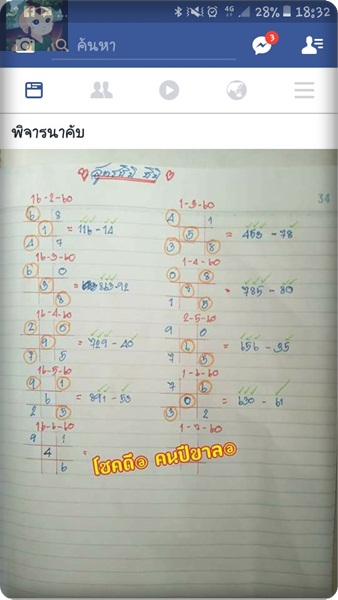 4G 28% 18:32
ค้นหา
3
พิจารณาคับ
34
16-2-60
6 8
1 = 116-14
4 7
16-3-60
6 0
3 = 863-92
8
16-4-60
2 0
9 = 729-40
7 5
16-5-60
9 1
6 = 391-53
2 5
16-6-60
9 1
4 =
6
1-3-60
4 1
5 = 453-78
3 8
1-4-60
0 8
7 = 785-80
1 5
2-5-60
9 0
6 = 656-35
7 5
1-6-60
7 6
0 = 630-61
3 2
1-7-60
โชคดี@ คนปีขาล@